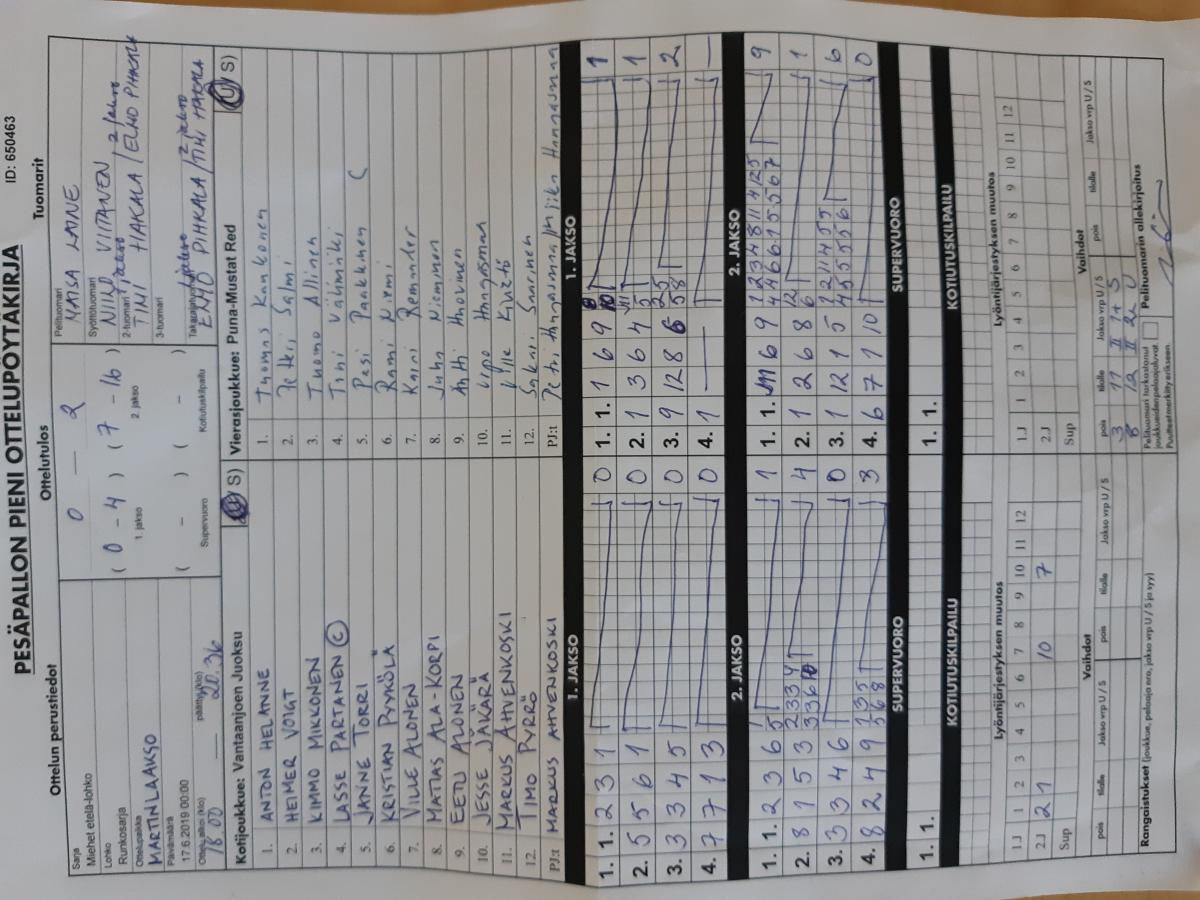 PESÄPALLON PIENI OTTELUPÖYTÄKIRJA
ID: 650463
Ottelun perustiedot
Sarja
Miehet etelä-lohko
Lohko
Runkosarja
Ottelupaikka
MARTINLAAKSO
Päivämäärä
17.6.2019 00:00
Ottelu alkoi (klo)
18 00
päättyi (klo)
20.36
Ottelutulos
0 — 2
( 0 - 4 ) ( 7 - 16 )
1. jakso 2. jakso
( - ) ( - )
Supervuoro Kotiutuskilpailu
Tuomarit
Pelituomari
MAISA LAINE
Syöttötuomari
NIILO VIITANEN / 2 jakso
2-tuomari
TIMI HAKALA / EEMO PIHKALA
3-tuomari
Takatuomari
EEMO PIHKALA / TIMI HAKALA
Kotijoukkue: Vantaanjoen Juoksu
(U S)
1. ANTON HELANNE
2. HEIMER VOIGT
3. KIMMO MIKKONEN
4. LASSE PARTANEN C
5. JANNE TORRI
6. KRISTIAN PYKÖLÄ
7. VILLE ALONEN
8. MATIAS ALA-KORPI
9. EETU ALONEN
10. JESSE JÄKÄRÄ
11. MARKUS AHVENKOSKI
12. TIMO PYRRÖ
PJ:t MARKUS AHVENKOSKI
Vierasjoukkue: Puna-Mustat Red
(U S)
1. Thomas Kankkonen
2. Petri Salmi
3. Tuomo Allinen
4. Timi Välimäki
5. Pasi Paakkinen C
6. Rami Niemi
7. Kairi Remander
8. Juha Nieminen
9. Antti Ahovinen
10. Vipo Hangasmaa
11. Ville
12. Sakari Saarinen
PJ:t Petri Hangasmaa
1. JAKSO
1. 1. 2 3 1 0
2. 5 5 6 1 0
3. 3 3 4 5 0
4. 7 7 1 3 0
1. JAKSO
1. 1. 1 6 9 1
2. 1 3 6 4 1
3. 9 12 8 6 2
4. 1 — —
2. JAKSO
1. 1. 2 3 6 1
2. 8 1 5 3 4
3. 3 3 4 6 0
4. 8 2 4 9 3
2. JAKSO
1. 1. 6 9 9
2. 1 2 6 8 1
3. 1 12 1 5 6
4. 6 7 1 10 0
SUPERVUORO
1. 1.
SUPERVUORO
1. 1.
KOTIUTUSKILPAILU
KOTIUTUSKILPAILU
Lyöntijärjestyksen muutos
1 2 3 4 5 6 7 8 9 10 11 12
1.J
2.J 2 1 10 7
Sup
Lyöntijärjestyksen muutos
1 2 3 4 5 6 7 8 9 10 11 12
1.J
2.J
Sup
Vaihdot
pois tilalle Jakso vrp U / S pois tilalle Jakso vrp U / S
Vaihdot
pois tilalle Jakso vrp U / S pois tilalle Jakso vrp U / S
3 11 II 1+ S
8 12 II 2 U
Rangaistukset (joukkue, pelaaja nro, jakso vrp U / S ja syy)
Pelituomari tarkastanut joukkueiden pelaajaluvat.
Puutteet merkitty erikseen.
Pelituomarin allekirjoitus